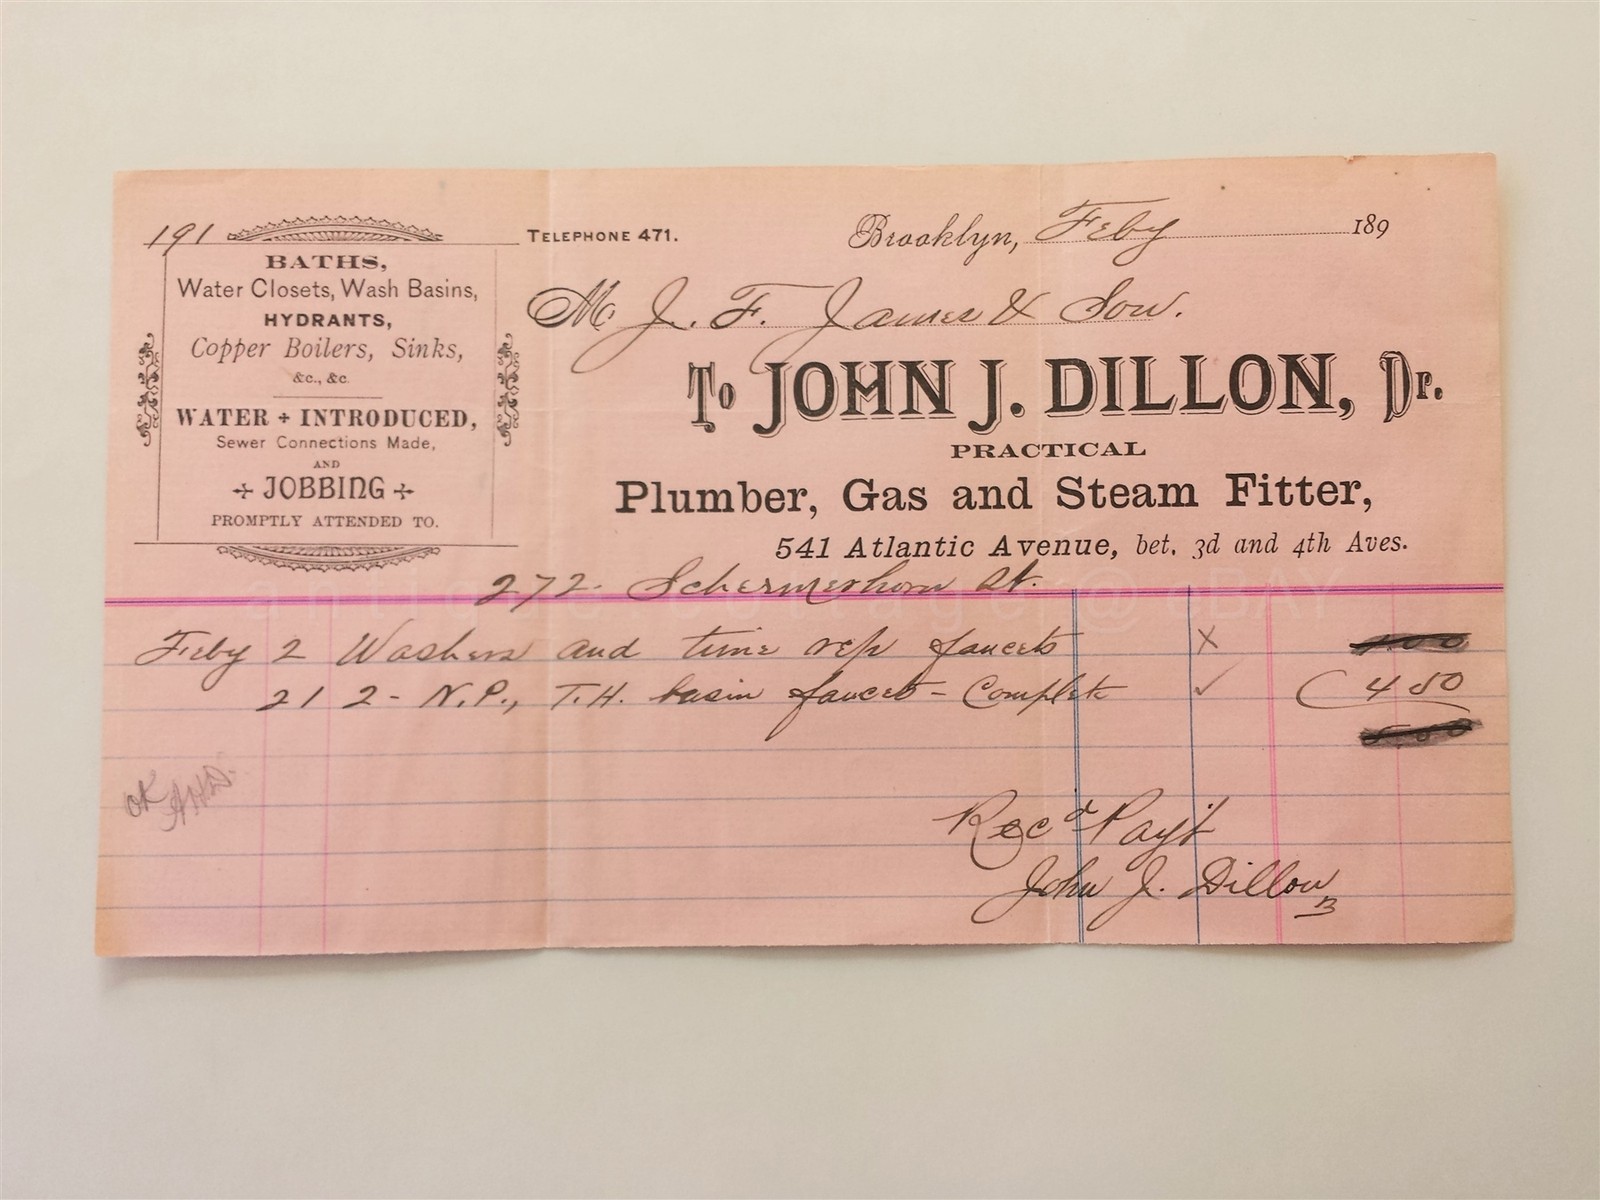 191
BATHS,
Water Closets, Wash Basins,
HYDRANTS,
Copper Boilers, Sinks,
&c., &c.
WATER + INTRODUCED,
Sewer Connections Made,
AND
JOBBING
PROMPTLY ATTENDED TO.
TELEPHONE 471.
Brooklyn, Feby 189
M J. F. James & Son.
To JOHN J. DILLON, Dr.
PRACTICAL
Plumber, Gas and Steam Fitter,
541 Atlantic Avenue, bet. 3d and 4th Aves.
272. Schermerhorn St.
Feby 2 Washers and time rep faucets X
21 2 - N.P., T.H. basin faucets - Complete ✓ 4 50
OK
Rec'd Payt
John J. Dillon